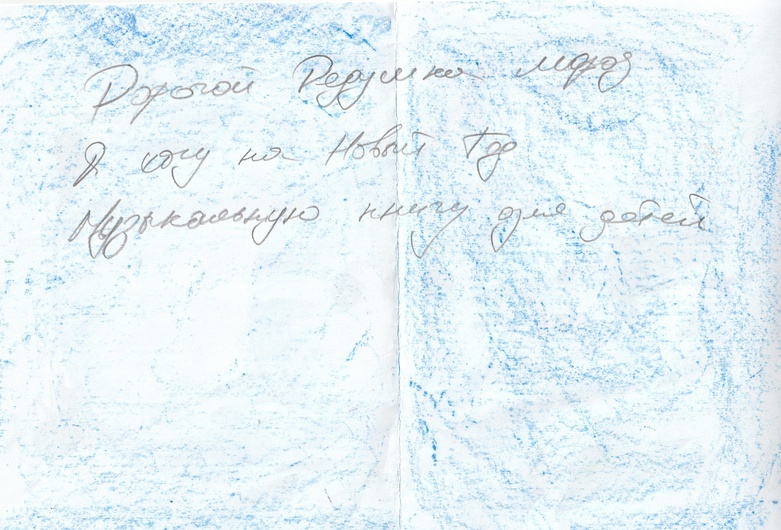 Дорогой Дедушка мороз
Я хочу на Новый Год
Музыкальную книгу для детей